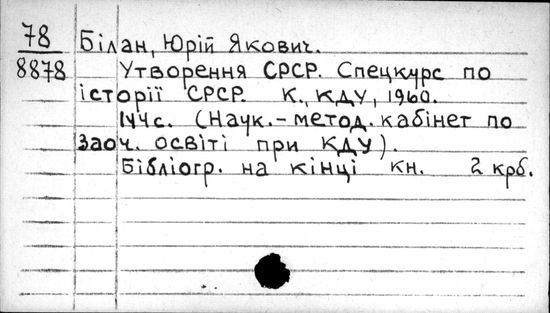 78
8878
Білан, Юрій Якович.
Утворення СРСР. Спецкурс по
історії СРСР. К., КДУ, 1960.
144с. (Наук.-метод. кабінет по
заоч. освіті при КДУ).
Бібліогр. на кінці кн. 2 крб.